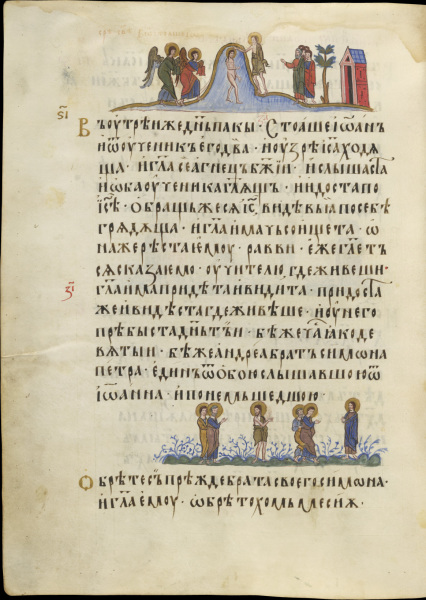 Въоутрѣижедн҃ьпакы · Стоꙗшеіѡан҃ъ
иѿоученикъегодва · иоузрѣіс҃ахода
ща · игл҃асеагнецъбж҃ии · ислышаста
иѡбаоученикагл҃ющь · иидостапо
іс҃ѣ · обращьжесѧіс҃ъвидѣвъꙗпосебѣ
грѧдѧща · игл҃аимачьсоищета · ѡ
нажерѣстаемоу · равви · ежеглет҃ъ
сѧсказаемо · оучителю гдеживеши
гл҃аимапридѣтаивидита · придоста
жеивидѣстагдеживѣше · иоунего
прѣбыстадн҃ьтъи · бѣжегод҃инаꙗкоде
вѧтыи · бѣжеанⷣреабратъсимѡна
петра · единъѿобоюслышавшоюѿ
іѡанна · ипонемьшедшою ·
Обрѣтесъпрѣждебратасвоегосимѡна ·
игл҃аемоу · ѡбрѣтохомьмесиѫ ·